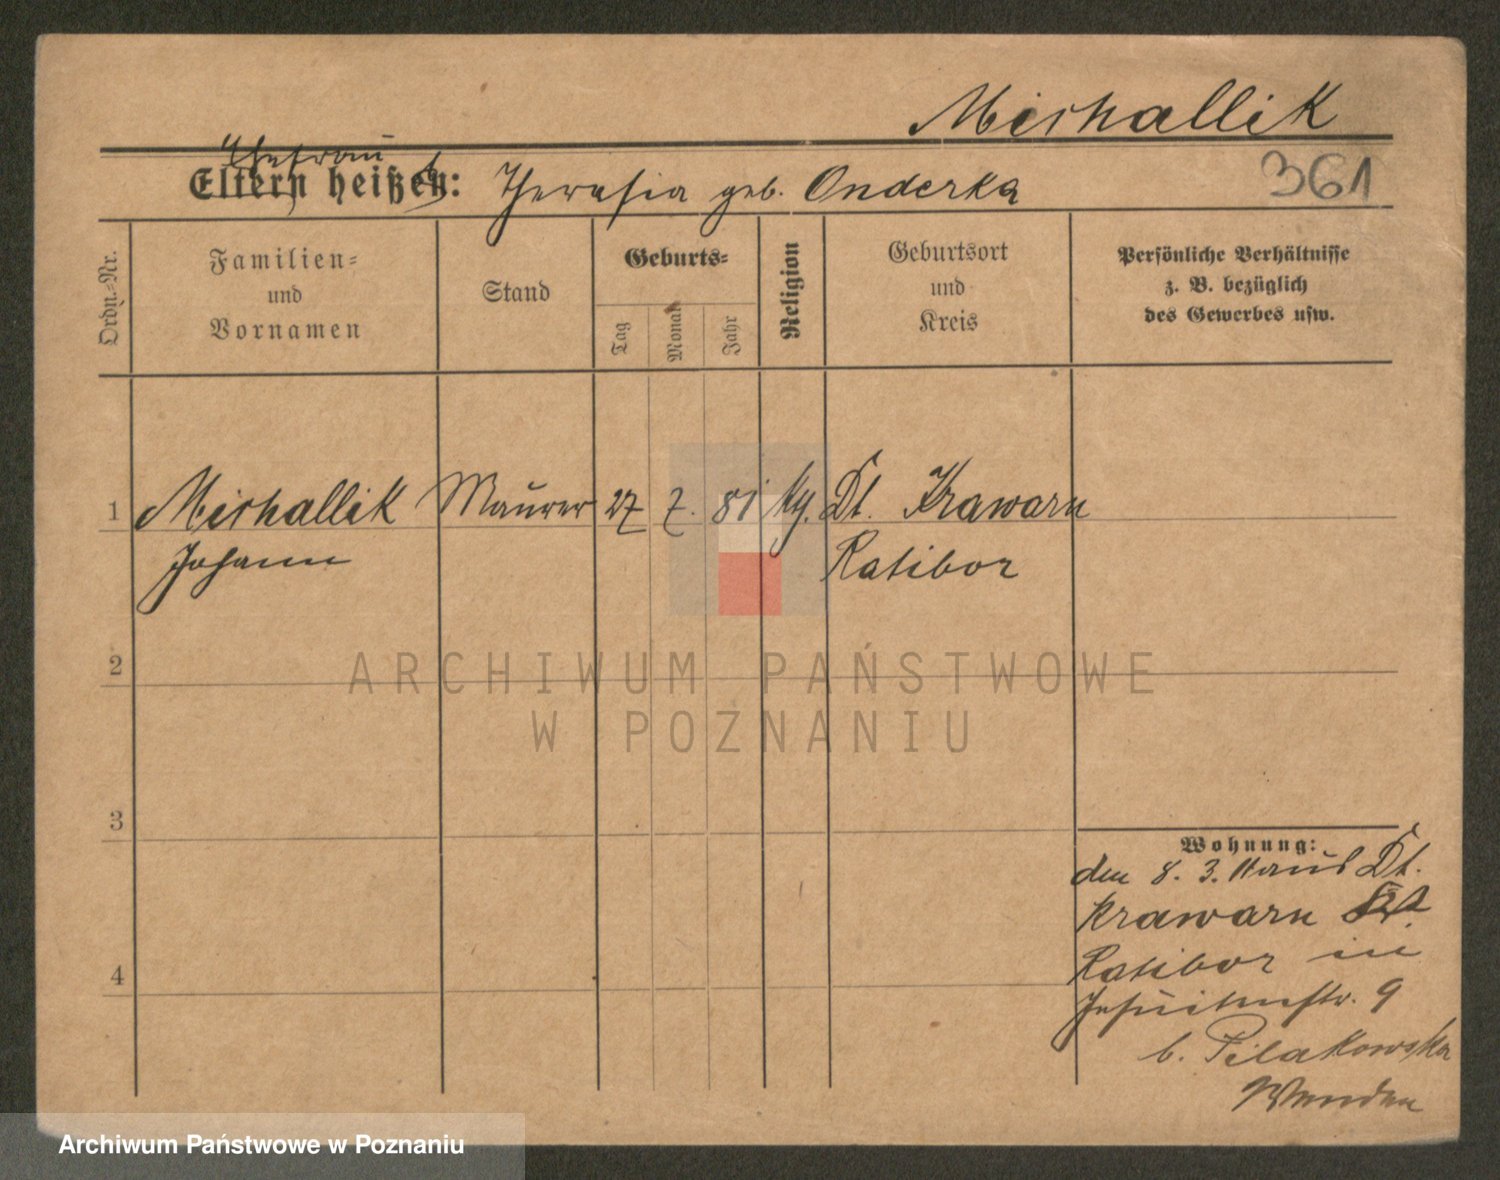 Mishallik
Ehefrau
Eltern heißen: Theresia geb. Onderka
361
Ordn.-Nr.
Familien-
und
Vornamen
Stand
Geburts-
Tag
Monat
Jahr
Religion
Geburtsort
und
Kreis
Persönliche Verhältnisse
z. B. bezüglich
des Gewerbes usw.
1 Mishallik Maurer 27 7. 81 kg. Dt. Krawarn
Johann Ratibor
2
3
4
Wohnung:
den 8. 3. 11 aus Dt.
Krawarn
Ratibor in
Jesuitenstr. 9
b. Pilakowska
ARCHIWUM PAŃSTWOWE
W POZNANIU
Archiwum Państwowe w Poznaniu